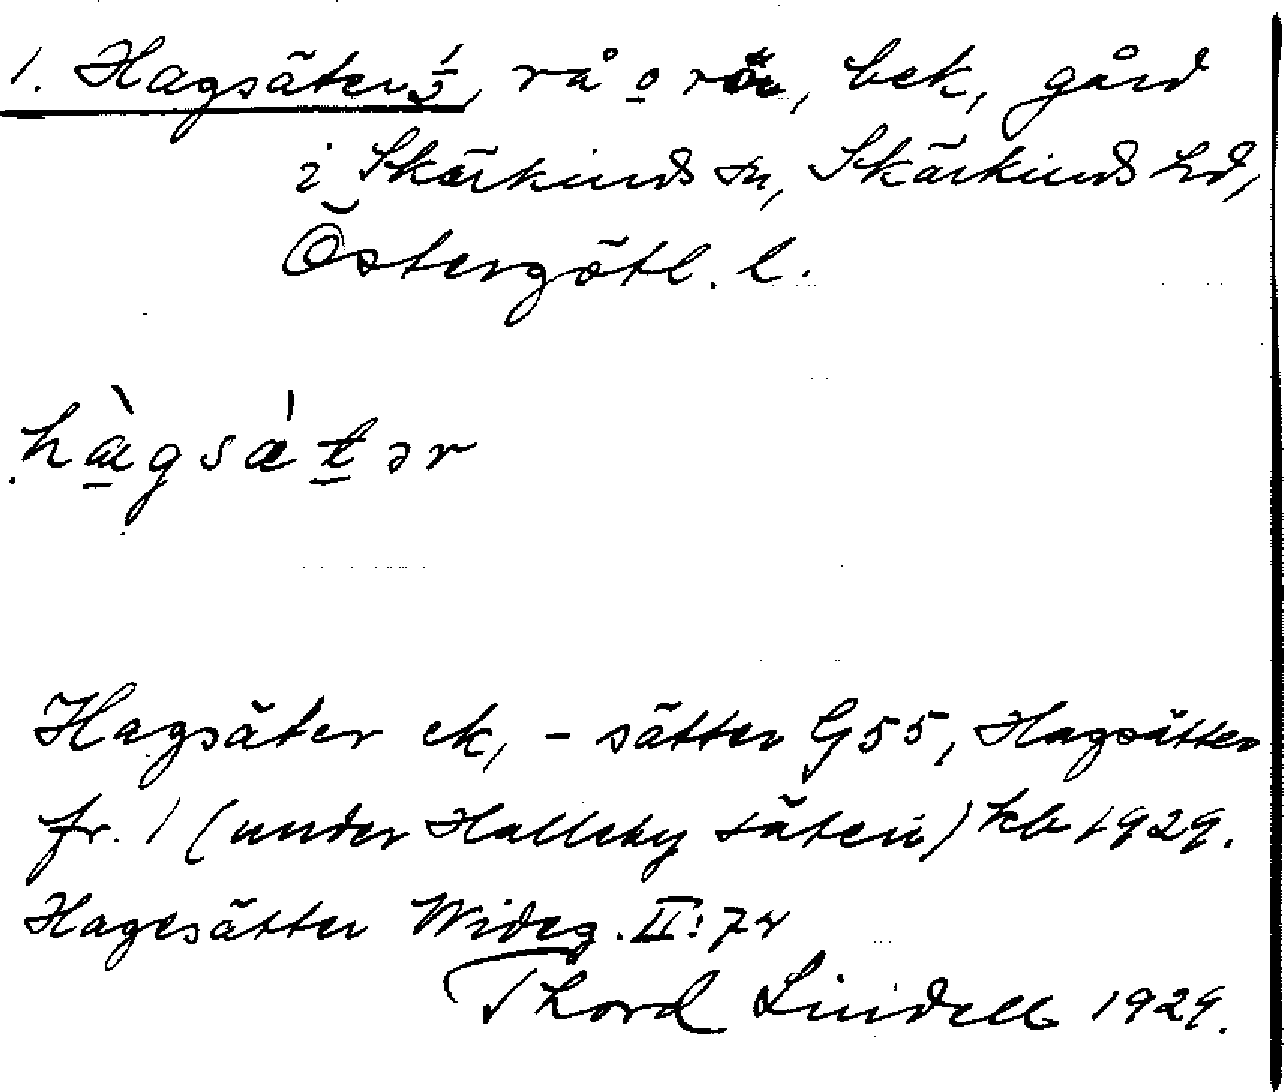 1. Hagsäter 1/5, rå o rör, bek, gård
i Skärkinds sn, Skärkinds hd,
Östergötl. l.
hàgsä́tər
Hagsäter ek, -sätter G55, Hagsätter
fr. 1 (under Halleby säteri) kb 1929.
Hagesätter Wideg. II: 74
Thord Lindell 1929.